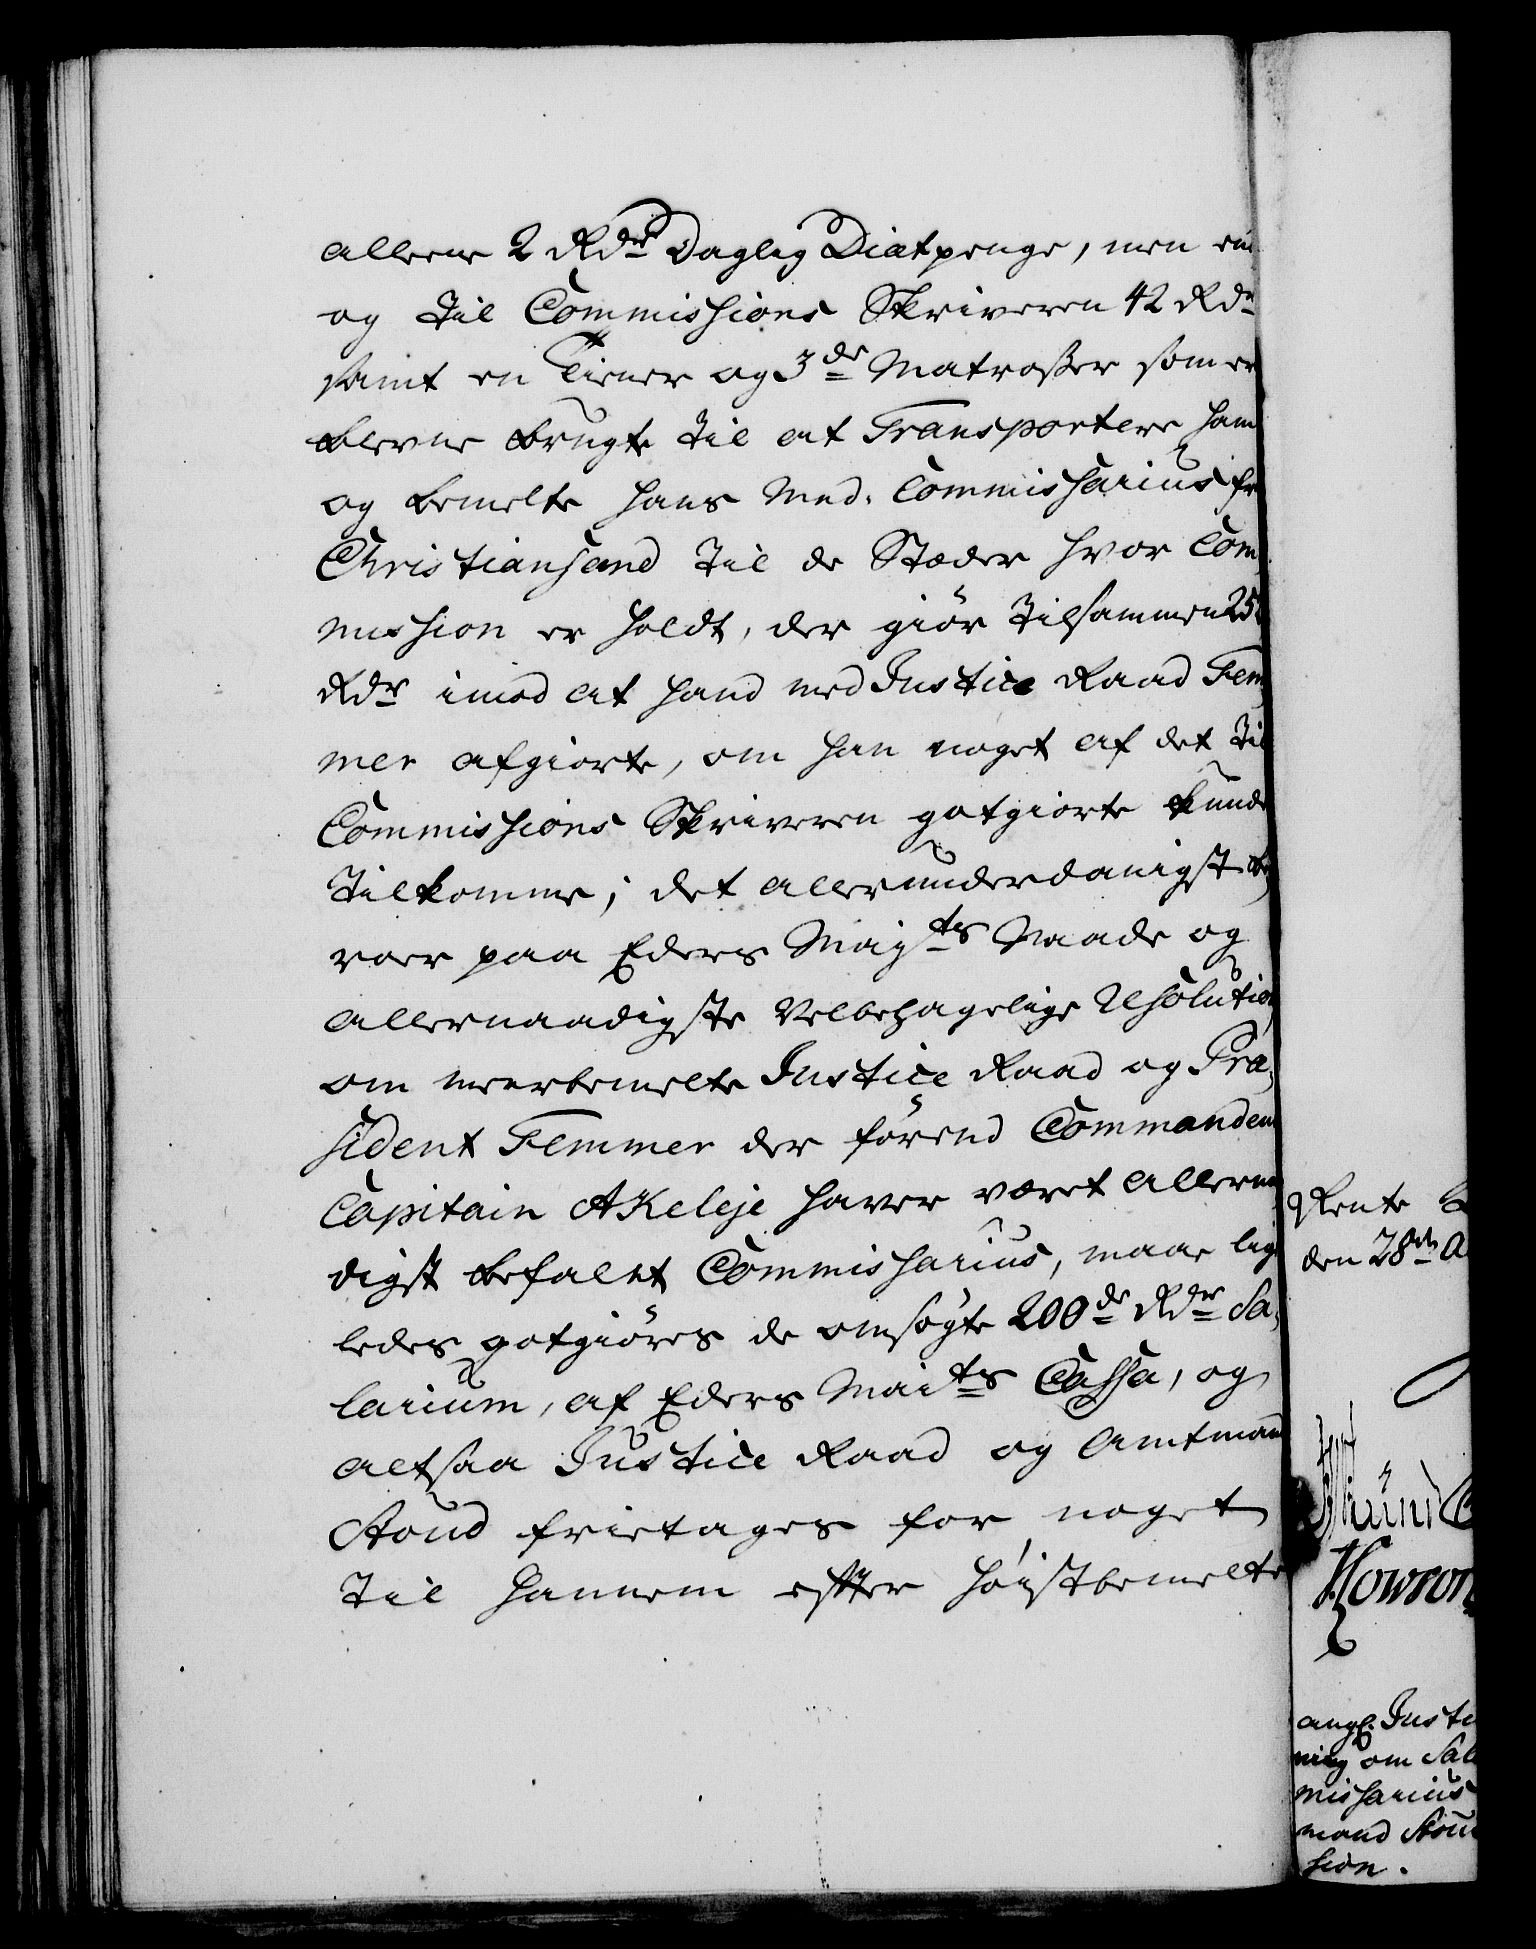 alleene 2 Rdr Daglig Diætpenge, men en
og til Commissions Skriveren 42 Rdr
samt en Tiener og 3de Matroßer som er
blevne brugte til at Transportere ham
og bemelte hans Med. Commissarius fra
Christiansand til de Stæder hvor Com¬
mission er holdt, der giør tilsammen 25
Rdr imod at hand med Justice Raad Fem¬
mer afgiorte, om han noget af det til
Commissions Skriveren gotgiorte kunde
tilkomme; det allerunderdanigst be¬
roer paa Eders Mayts Naade og
allernaadigste Velbehagelige Resolution
om meerbemelte Justice Raad og Præ¬
sident Femmer der førend Commandeur
Capitain Akeleje haver været allernaa
digst befalet Commissarius, maae lige
ledes gotgiøres de omsøgte 200de Rdr Sa¬
larium, af Eders Maits Cassa, og
altsaa Justice Raad og Amtmand
Stoud frietages for noget
til hannem efter høistbemelte
Rente
den 28de A
Howson
angl. Justi
ning om Sal
missarius
mand Stou
sion.